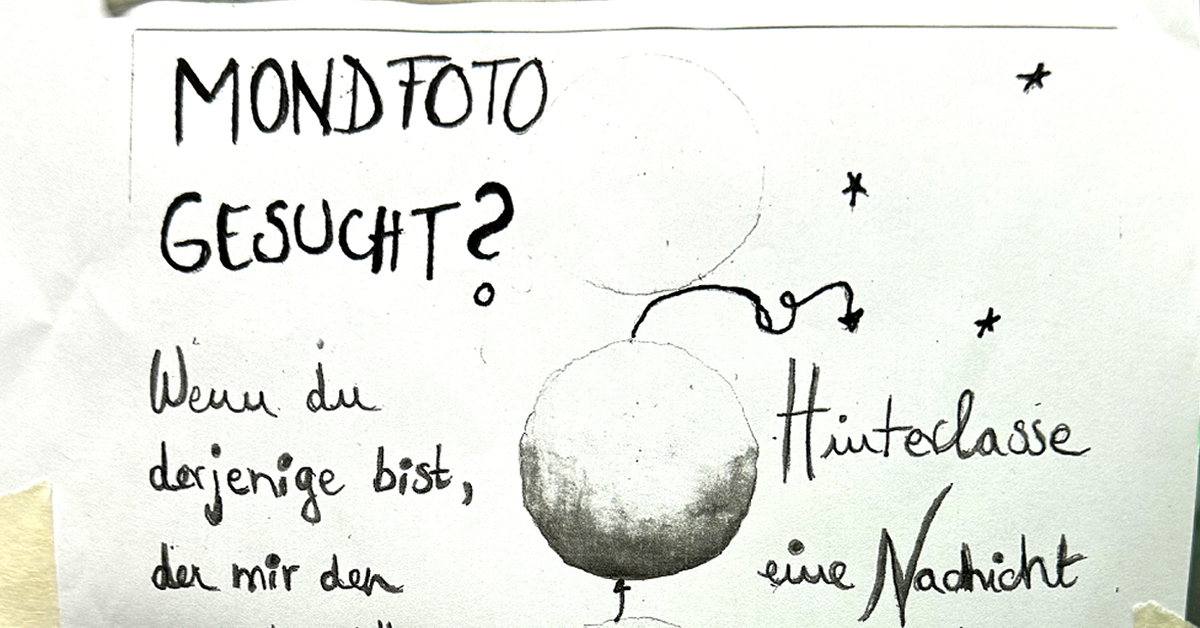 MONDFOTO
GESUCHT?
Wenn du
derjenige bist,
der mir den
Hinterlasse
eine Nachricht